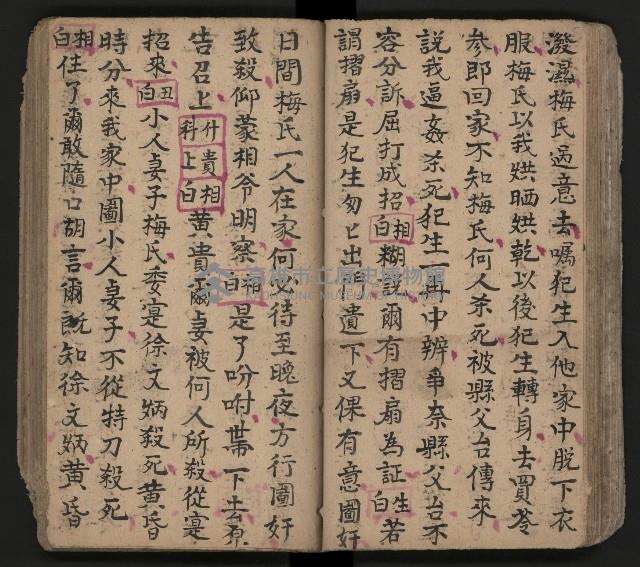 潑濕梅氏過意去嘱犯生入他家中脫下衣
服梅氏以我烘晒烘乾以後犯生轉身去買苓
参即回家不知梅氏何人杀死被縣父台傳來
説我逼姦杀死犯生一再中辨爭奈縣父台不
容分訴屈打成招相白糊説爾有摺扇為証生白若
謂摺扇是犯生匆匕出門遺下又倮有意圖奸
日間梅氏一人在家何必待至晚夜方行圖奸
致殺仰蒙相爷明察相白是了吩咐帶下去原
告召上什科貴上相白黄貴爾妻被何人所殺從寔
招來丑白小人妻子梅氏委寔徐文炳殺死黄昏
時分來我家中圖小人妻子不從特刀殺死
相白住了爾敢隨口胡言爾既知徐文炳黄昏
高雄市立歷史博物館
KAOHSIUNG MUSEUM OF HISTORY